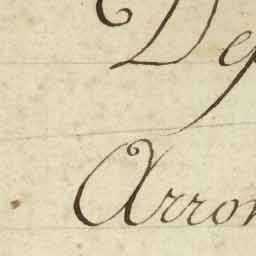 Dep
Arron